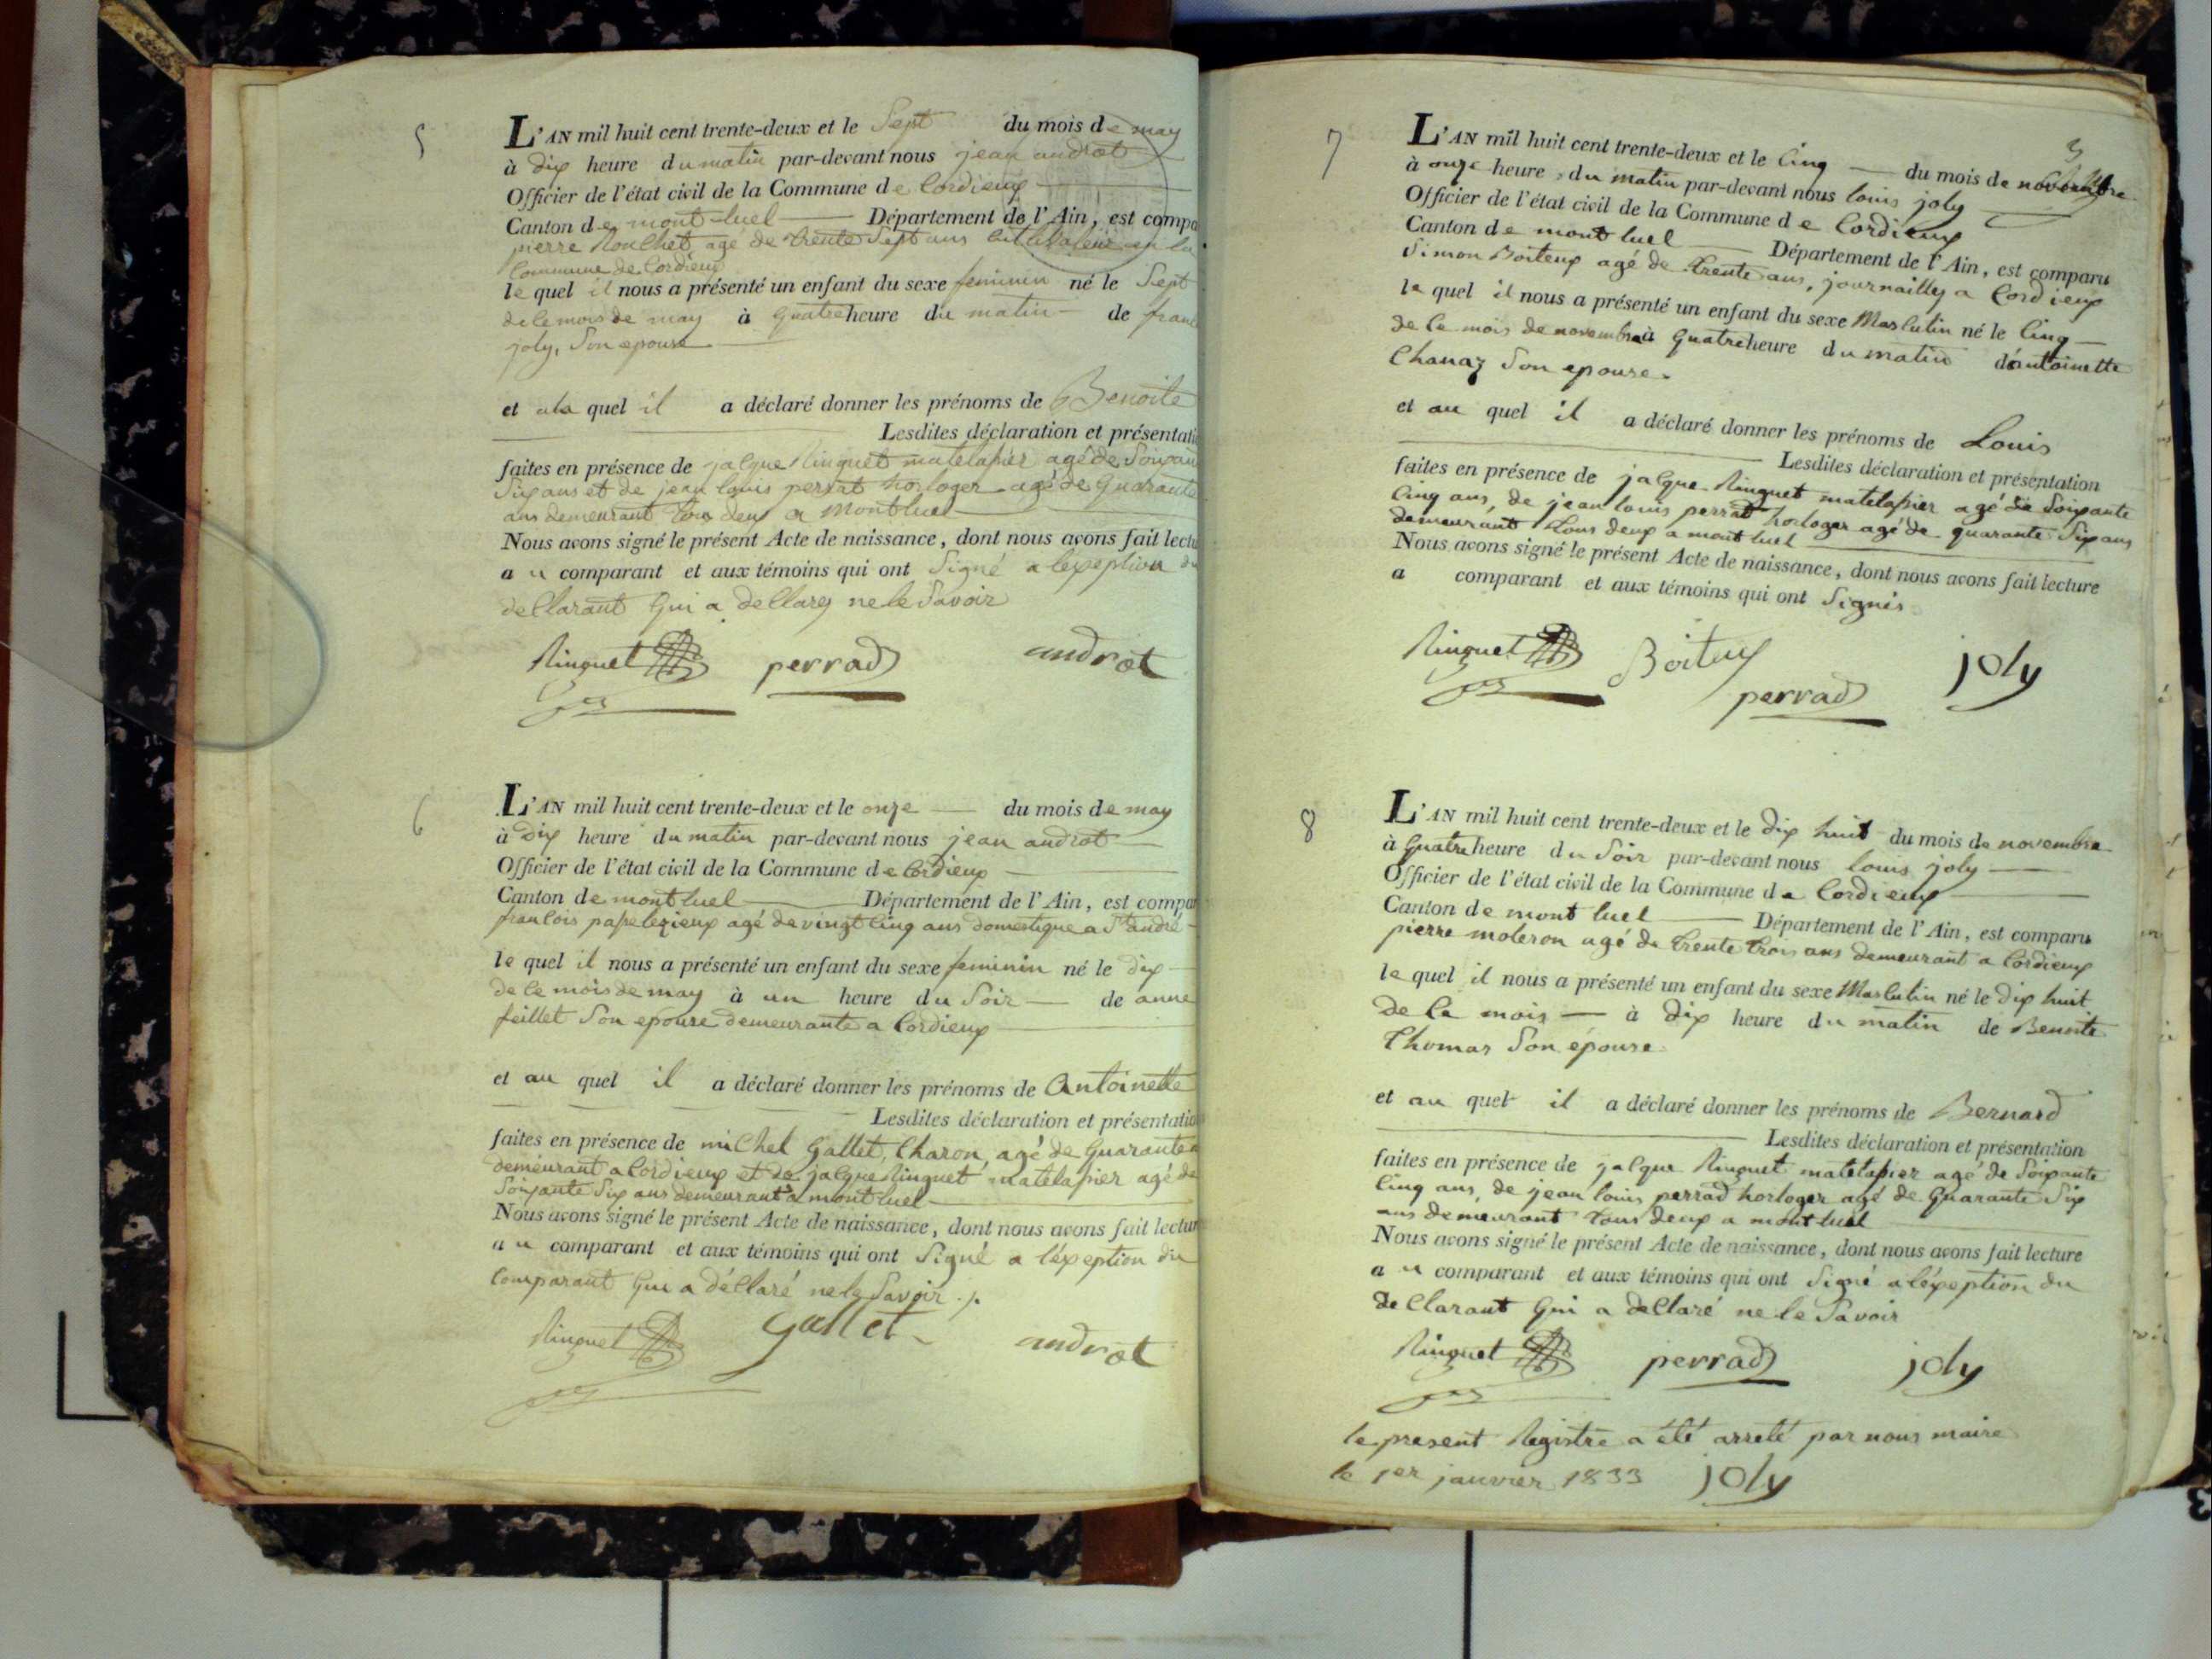 5
L'AN mil huit cent trente-deux et le Sept du mois de may
à dix heure du matin par-devant nous jean androt
Officier de l'état civil de la Commune de Cordieux
Canton de mont-luel Département de l'Ain, est compa
pierre agé de trente Sept ans en la
Commune de Cordieux
le quel il nous a présenté un enfant du sexe feminin né le Sept
de ce mois de may à quatre heure du matin de
joly, Son epouse
et ala quel il a déclaré donner les prénoms de Benoite
Lesdites déclaration et présentati
faites en présence de jacque Ringuet matelassier agé de
Six ans et de jean louis perrat horloger agé de quarante
ans demeurant tous deux a Montluel
Nous avons signé le présent Acte de naissance, dont nous avons fait lectu
au comparant et aux témoins qui ont Signé a lexeption du
declarant qui a declarez ne le Savoir
Ringuet perrad androt
6
L'AN mil huit cent trente-deux et le onze du mois de may
à Dix heure du matin par-devant nous jean androt
Officier de l'état civil de la Commune de Cordieux
Canton de montluel Département de l'Ain, est compar
francois papelezieux agé de vingt cinq ans domestique a St andré
le quel il nous a présenté un enfant du sexe feminin né le dix
de ce mois de may à un heure du Soir de anne
feillet Son epouse demeurante a Cordieux
et au quel il a déclaré donner les prénoms de Antoinette
Lesdites déclaration et présentatio
faites en présence de michel Gallet, Charon, agé de quarante
demeurant a Cordieux et de jacque Ringuet matelassier agé de
Soixante Six ans demeurant a montluel
Nous avons signé le présent Acte de naissance, dont nous avons fait lectur
au comparant et aux témoins qui ont Signé a l'éxeption du
Comparant qui a déclaré ne le Savoir ./.
Ringuet Gallet androt
7
L'AN mil huit cent trente-deux et le Cinq du mois de novembre
à onze heure du matin par-devant nous louis joly
Officier de l'état civil de la Commune de Cordieux
Canton de mont luel Département de l'Ain, est comparu
Simon Boiteux agé de trente ans, journailley a Cordieux
le quel il nous a présenté un enfant du sexe Masculin né le Cinq
de ce mois de novembre à quatre heure du matin d'antoinette
Chanaz Son epouse.
et au quel il a déclaré donner les prénoms de Louis
Lesdites déclaration et présentation
faites en présence de jacque Ringuet matelassier agé de Soixante
Cinq ans, de jean louis perrat horloger agé de quarante Six ans
demeurant tous deux a mont luel
Nous avons signé le présent Acte de naissance, dont nous avons fait lecture
a comparant et aux témoins qui ont Signés
Ringuet Boiteux joly
perrad
8
L'AN mil huit cent trente-deux et le dix huit du mois de novembre
à quatre heure du Soir par-devant nous louis joly
Officier de l'état civil de la Commune de Cordieux
Canton de mont luel Département de l'Ain, est comparu
pierre moleron agé de trente trois ans demeurant a Cordieux
le quel il nous a présenté un enfant du sexe Masculin né le dix huit
de ce mois à dix heure du matin de Benoite
Thomas Son épouse
et au quel il a déclaré donner les prénoms de Bernard
Lesdites déclaration et présentation
faites en présence de jacque Ringuet matelassier agé de Soixante
Cinq ans, de jean louis perrad horloger agé de quarante Six
ans demeurant tous deux a mont luel
Nous avons signé le présent Acte de naissance, dont nous avons fait lecture
au comparant et aux témoins qui ont Signé a l'éxeption du
declarant qui a declaré ne le Savoir
Ringuet perrad joly
le present Registre a été arreté par nous maire
le 1er janvier 1833 joly